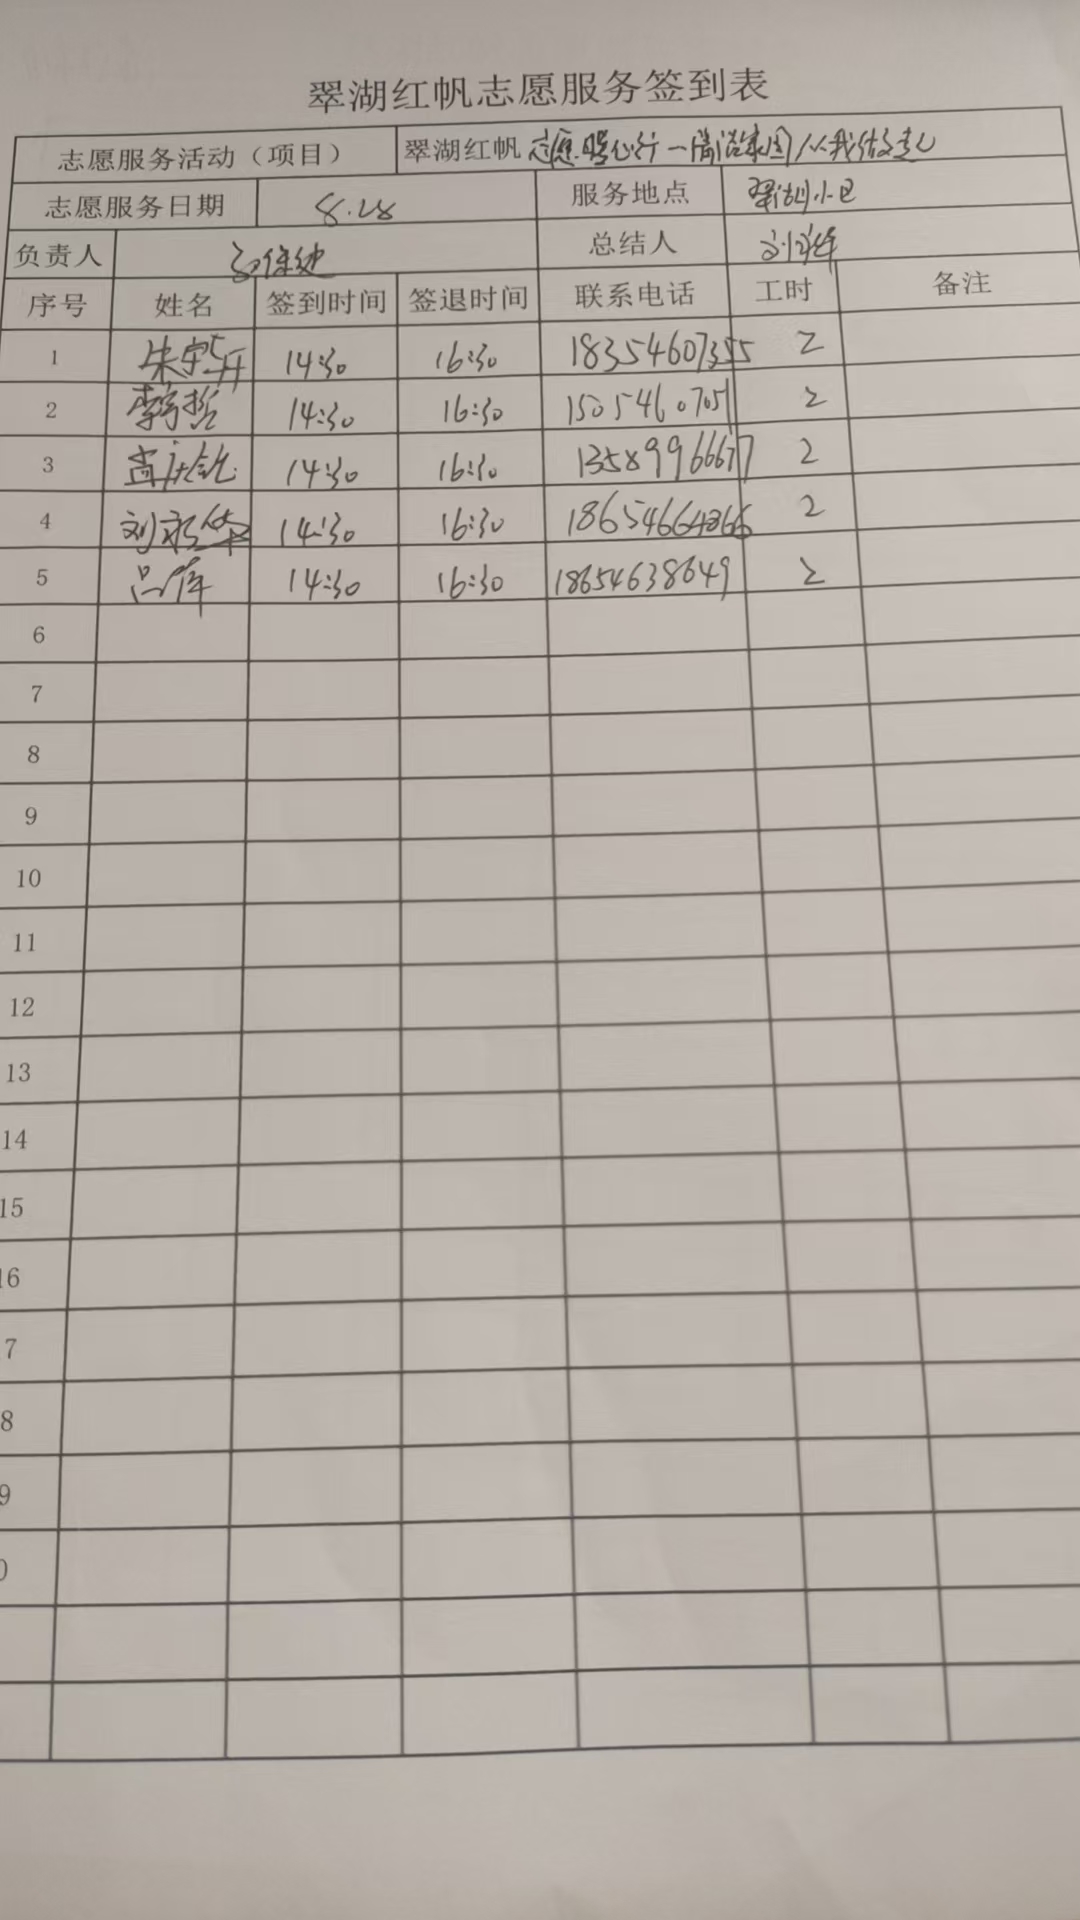 翠湖红帆志愿服务签到表
志愿服务活动（项目） 翠湖红帆 志愿暖心行一清洁家园从我做起
志愿服务日期 8.28 服务地点 翠湖小区
负责人 总结人
序号 姓名 签到时间 签退时间 联系电话 工时 备注
1 14:30 16:30 18354607355 2
2 李哲 14:30 16:30 15054607051 2
3 14:30 16:30 13589966677 2
4 刘永华 14:30 16:30 18654664866 2
5 吕萍 14:30 16:30 18654638649 2
6
7
8
9
10
11
12
13
14
15
16
7
8
9
0